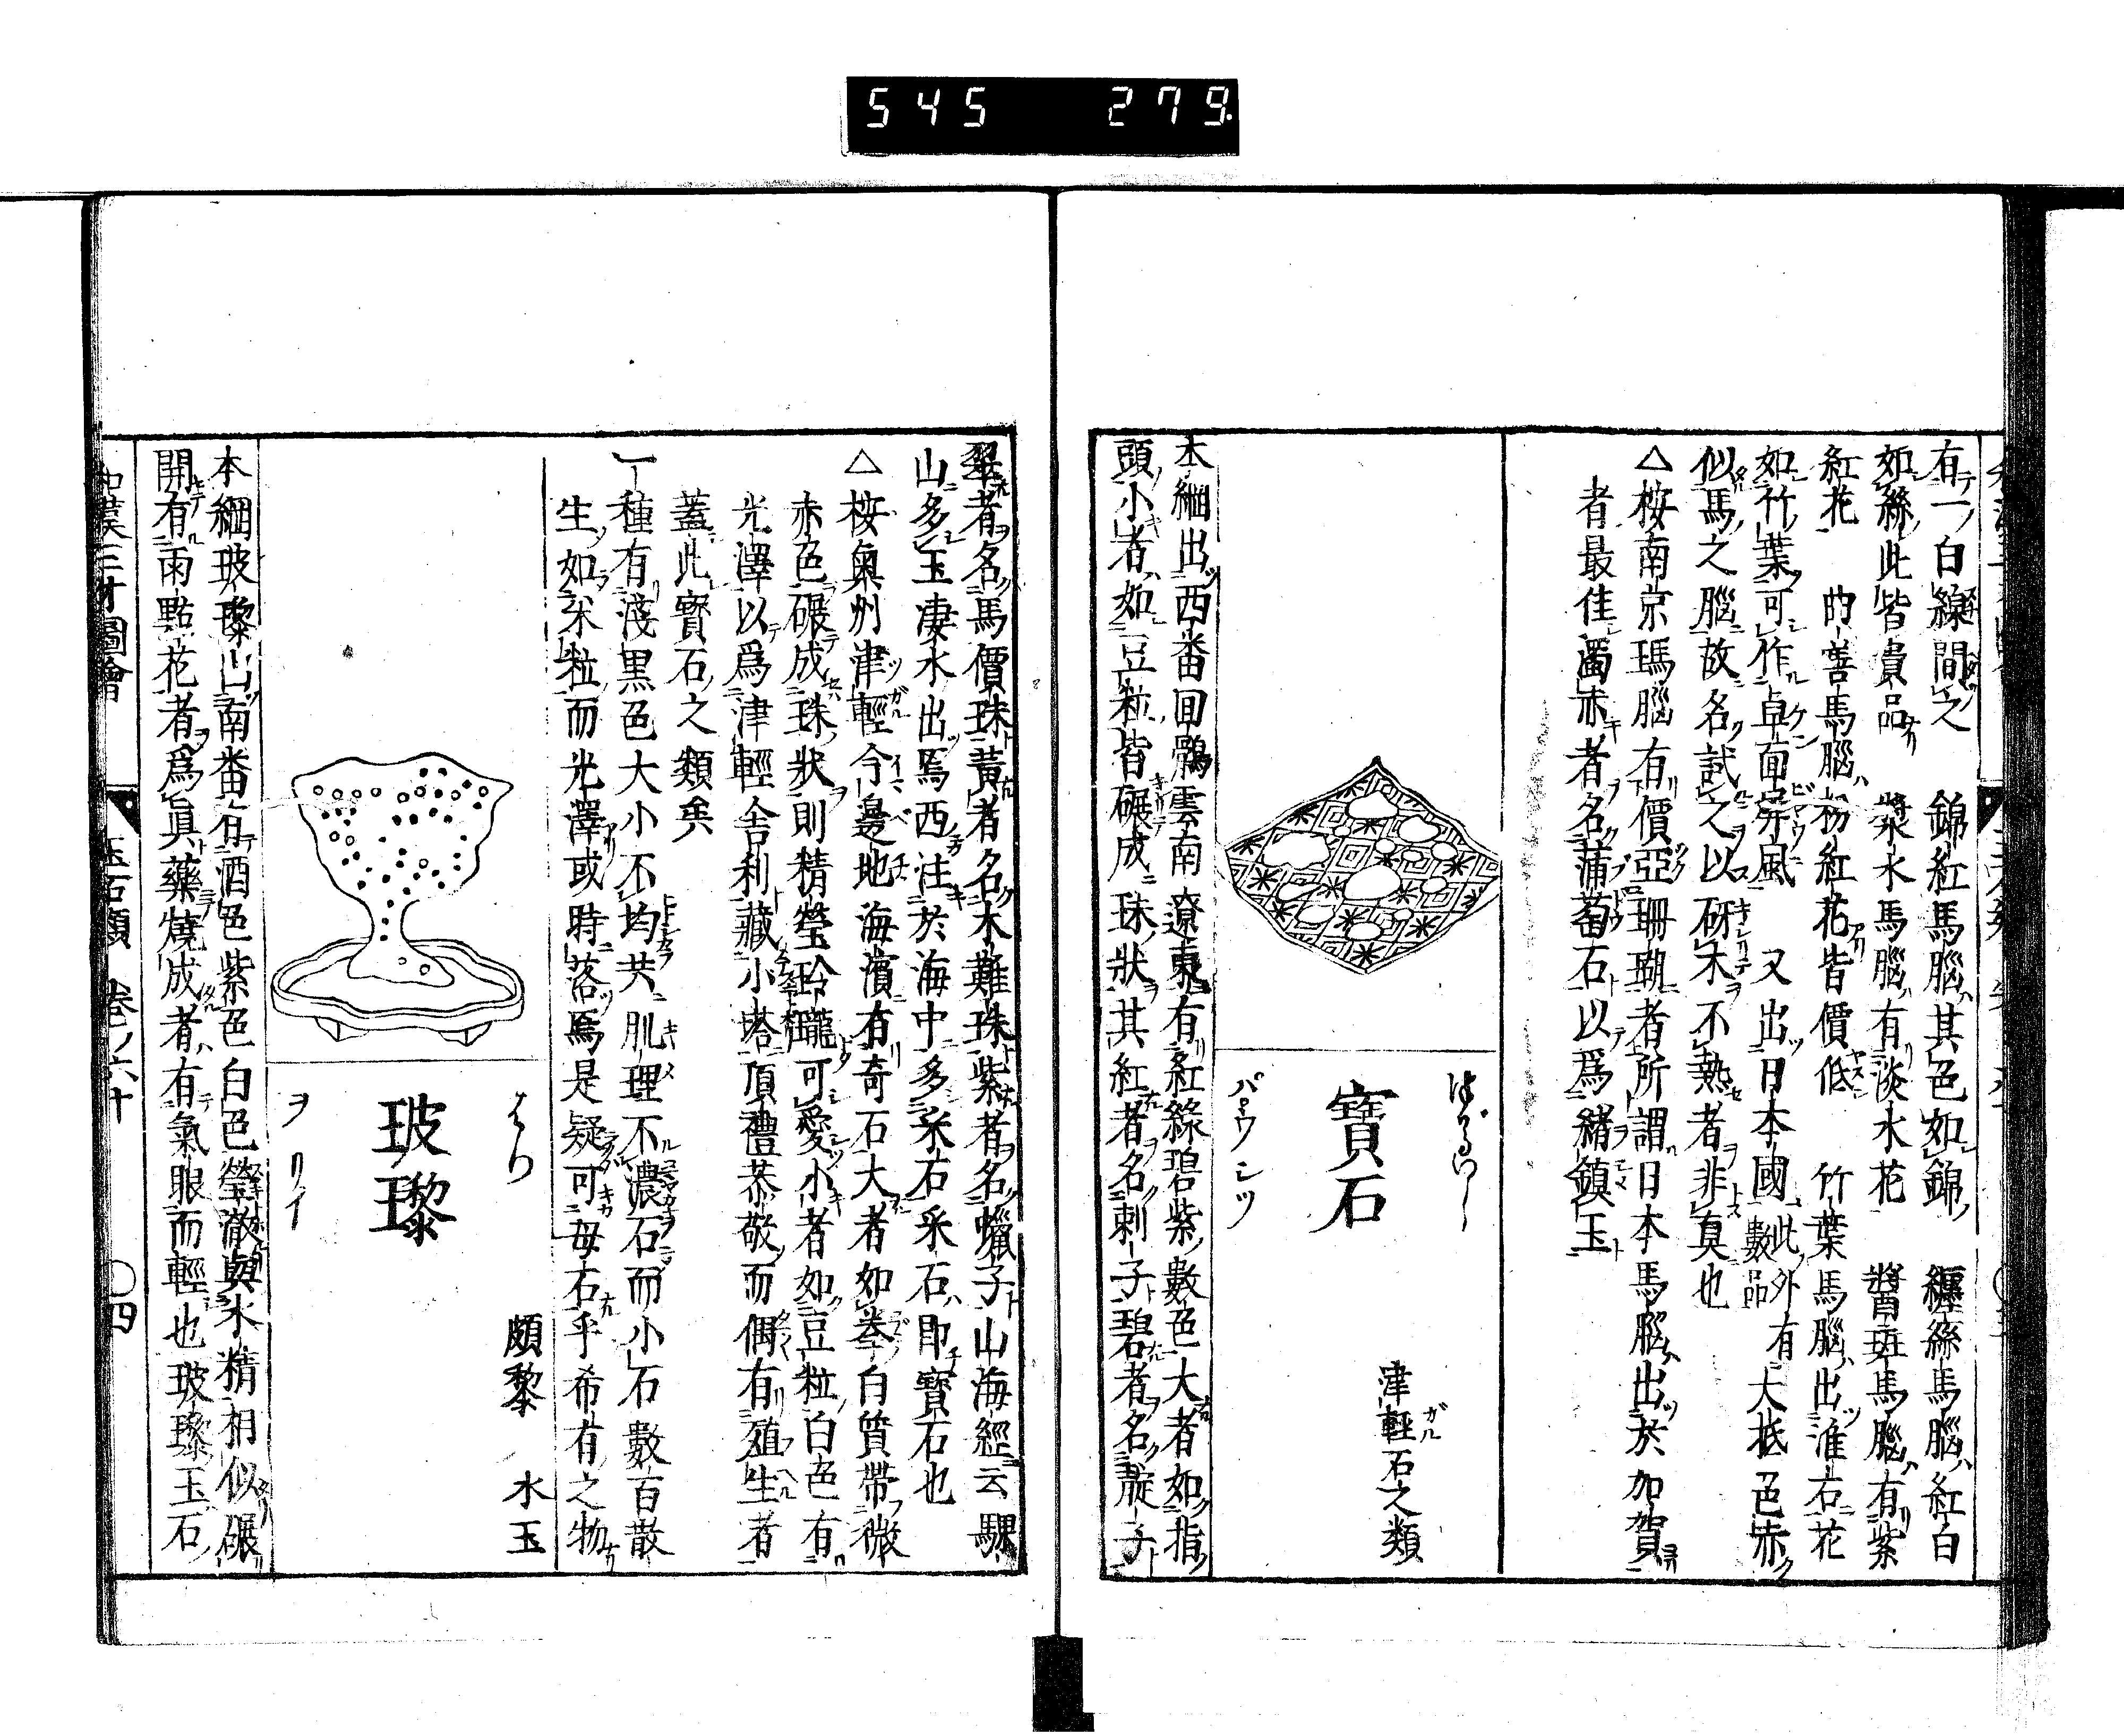 545 279.
有一白線間之　錦紅馬腦其色如錦　纏絲馬腦紅白
如絲此皆貴品　漿水馬腦有淡水花　醬斑馬腦有紫
紅花　的善馬腦粉紅花皆價低　竹葉馬腦出淮右花
如竹葉可作卓面屏風　又出日本國　此外有數品　大抵色赤
似馬之腦故名試之以砑木不熱者非眞也
△桉南京瑪腦有價亞珊瑚者所謂日本馬腦出於加賀
者最佳濁赤者名蒲萄石以爲緒鎮玉
寶石
パ゚ウ シツ
津輕石之類
本綱出西番回鶻雲南遼東有紅綠碧紫數色大者如指
頭小者如豆粒皆碾成珠狀其紅者名刺子碧者名靛子
翠者名馬價珠黃者名木難珠紫者名蠟子山海經云騩
山多玉凄水出焉西注於海中多采石采石即寶石也
△桉奥州津輕今邊地海濱有奇石大者如拳白質帶微
赤色碾成珠狀則精瑩玲瓏可愛小者如豆粒白色有
光澤以爲津輕舍利藏小塔頂禮恭敬而偶有殖生者
蓋此寳石之類矣
一種有淺黒色大小不均共肌理不濃石而小石數百散
生如米粒而光澤或時落焉是疑可母石乎希有之物
玻瓈
はり
ヲ リイ
頗黎　水玉
本綱玻瓈出南番有酒色紫色白色瑩澈與水精相似碾
開有雨點花者爲眞藥燒成者有氣眼而輕也玻瓈玉石
和漢三才圖會　玉石類 卷ノ六十　〇四